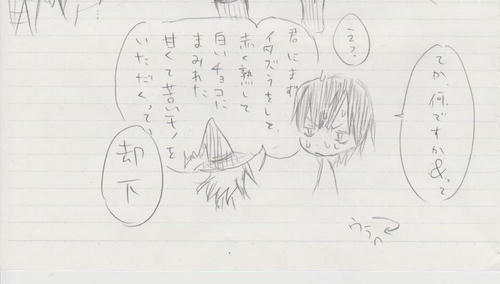 てか、何ですか&って
え?
君にまず
イタズラをして、
赤く熟して
白いチョコに
まみれた
甘くて苦いモノを
いただくって、
却下
ウラへ